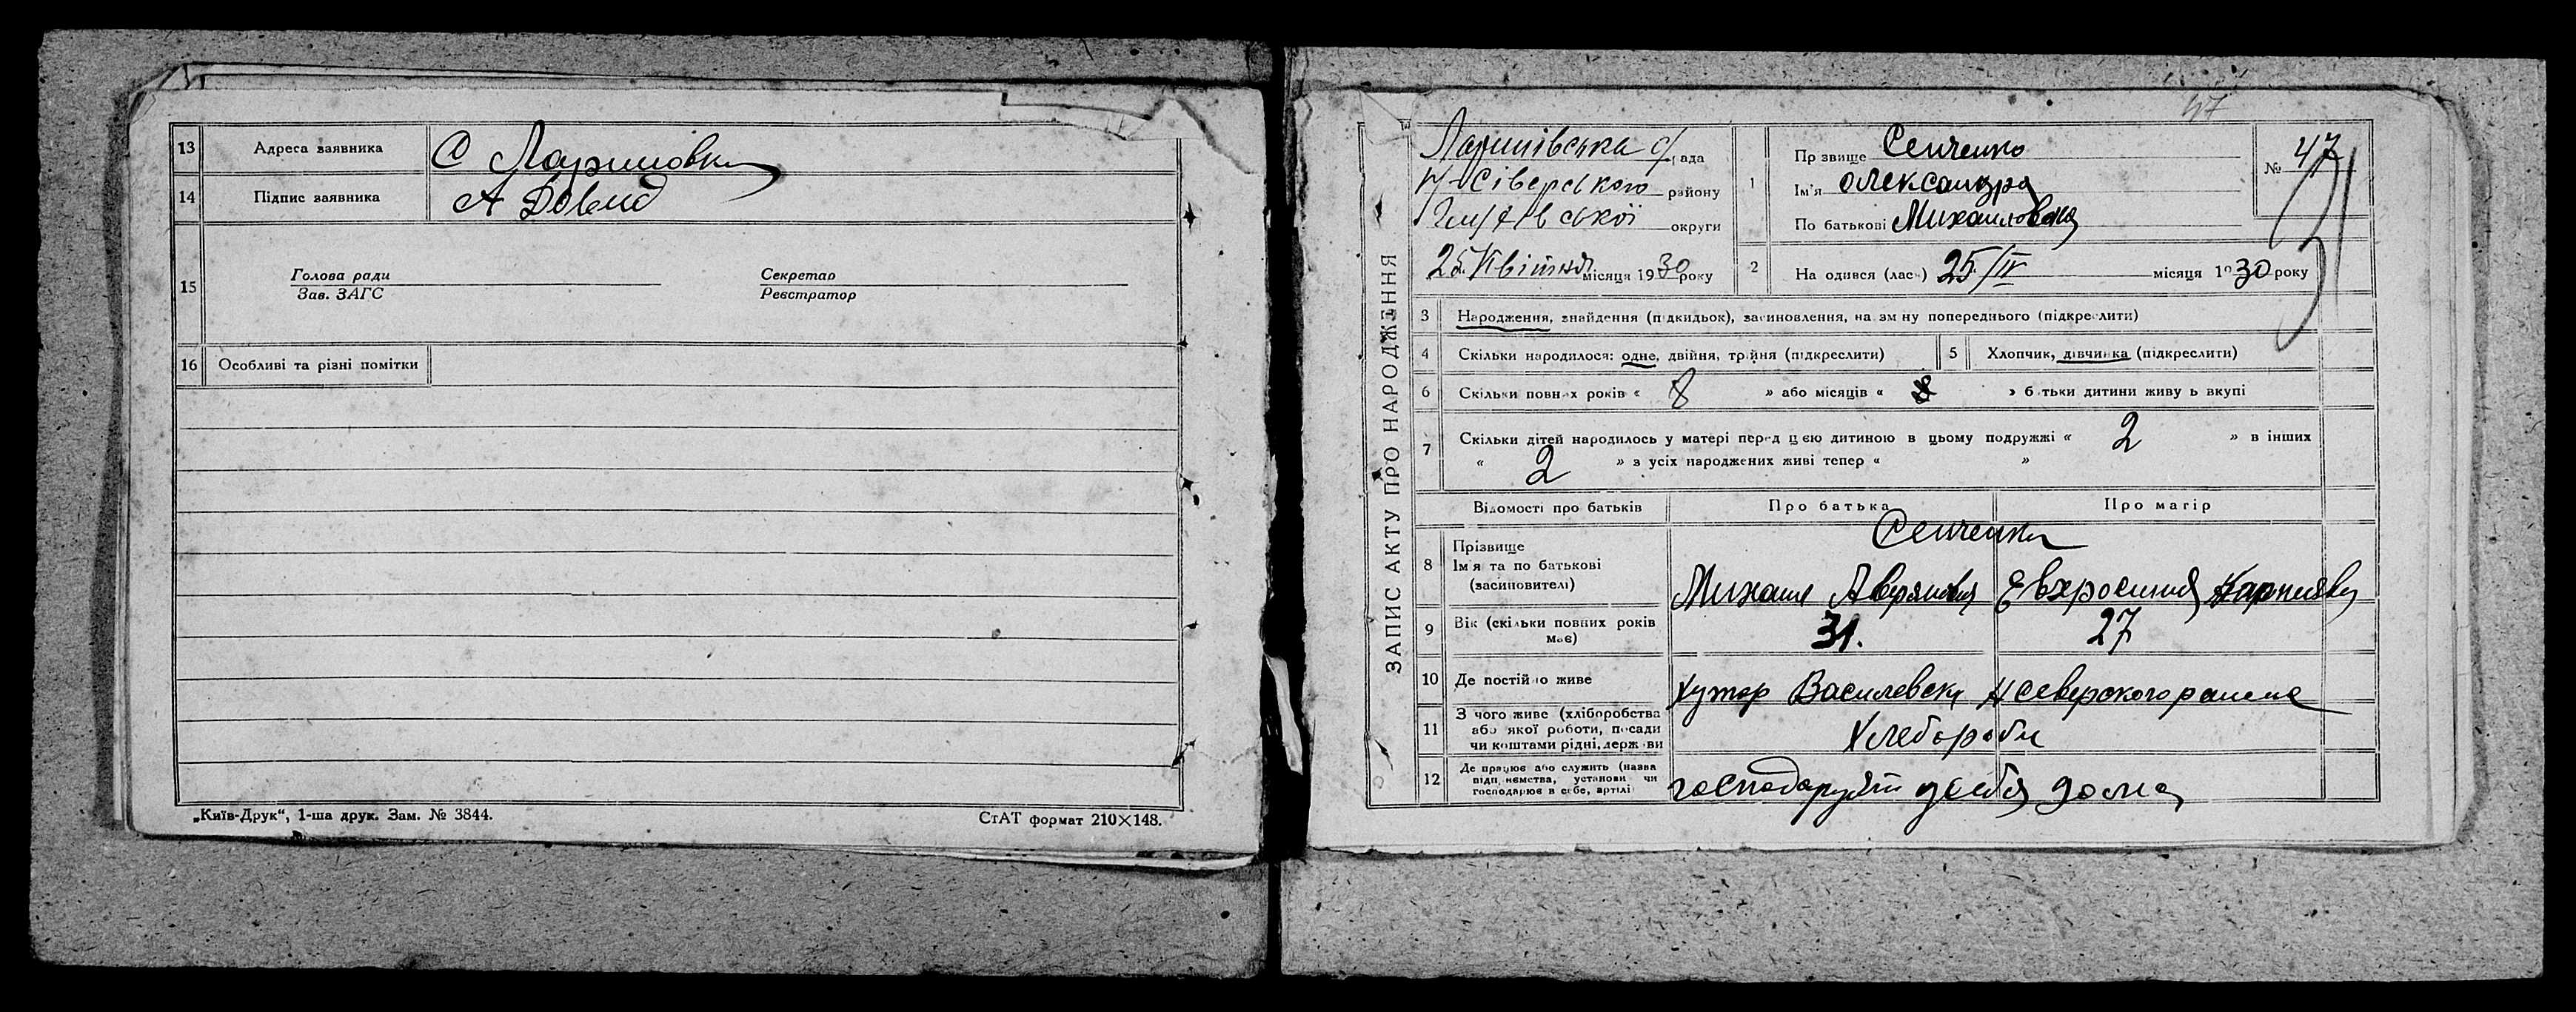 13 Адреса заявника С Лариновка
14 Підпис заявника А Довид
15 Голова ради Секретар
Зав. ЗАГС Реєстратор
16 Особливі та різні помітки
„Київ-Друк“, 1-ша друк. Зам. № 3844. СтАТ формат 210×148.
47
ЗАПИС АКТУ ПРО НАРОДЖЕННЯ
Ларинівська с/рада
Н-Сіверського району
округи
25 Квітня місяця 1930 року
1 Прізвище Сенченко
Ім'я Олександра
По батькові Михаиловна
№ 47
2 На одився (лась) 25/IV місяця 1930 року
3 Народження, знайдення (підкидьок), засиновлення, на зміну попереднього (підкреслити)
4 Скільки народилося: одне, двійня, трійня (підкреслити) 5 Хлопчик, дівчинка (підкреслити)
6 Скільки повних років « 8 » або місяців « » батьки дитини живуть вкупі
7 Скільки дітей народилось у матері перед цією дитиною в цьому подружжі « 2 » в інших
« 2 » з усіх народжених живі тепер « »
Відомості про батьків Про батька Про матір
Сенченки
8 Прізвище
Ім'я та по батькові
(засиновителі)
Михаил Аверянович Евхросиния
9 Вік (скільки повних років
має)
31. 27
10 Де постійно живе хутор Василевск Н Северского раиена
11 З чого живе (хліборобства
або якої роботи, посади
чи коштами рідні, держави
Хлебороби
12 Де працює або служить (назва
підприємства, установи чи
господарює в себе, артілі)
господарують усебя дома